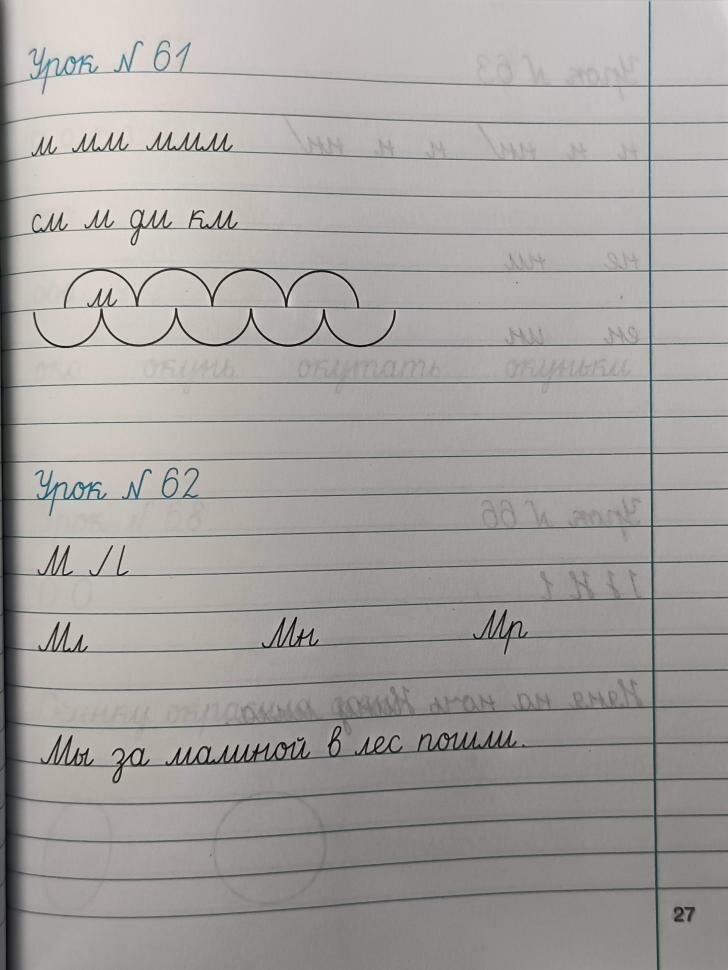 Урок № 61
м мм ммм
см м дм км
м
Урок № 62
М
Мл Мн Мр
Мы за малиной в лес пошли.
27